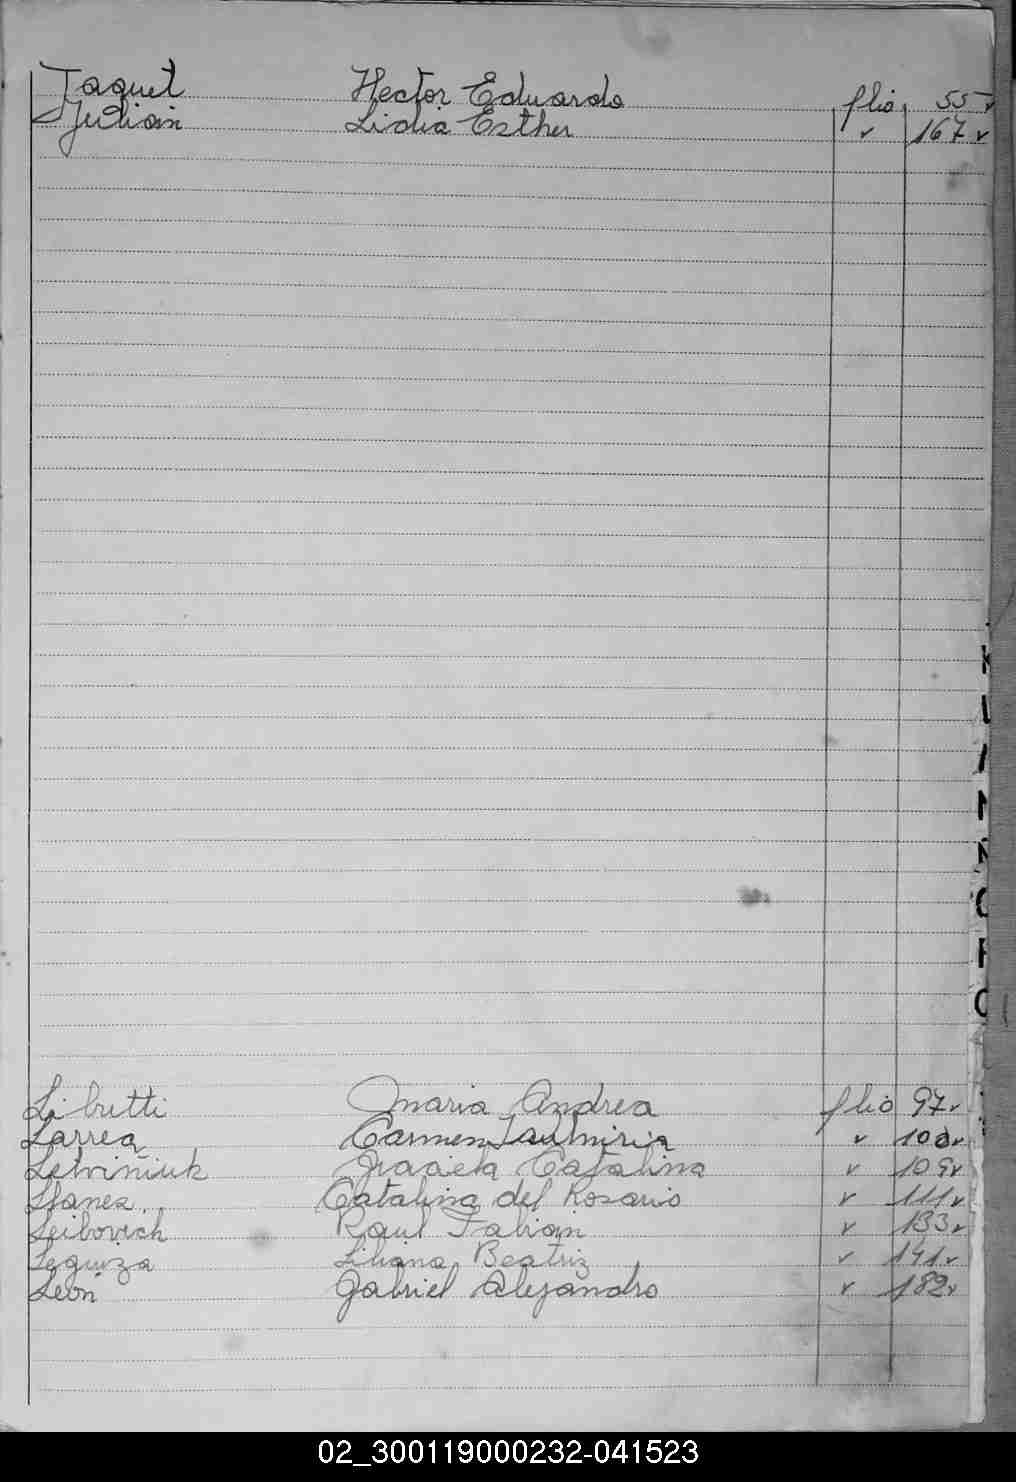 Jaquet Hector Eduardo flio 55 v
Julián Lidia Esther v 167 v
K
L
M
N
Ñ
O
P
Q
Libutti Maria Andrea flio 97 v
Larrea Carmen v 100 v
Letviñiuk Graciela Catalina v 109 v
Llanes Catalina del Rosario v 111 v
Leibovich Raul Fabian v 133 v
Leguiza Liliana Beatriz v 141 v
León Gabriel Alejandro v 182 v
02_300119000232-041523